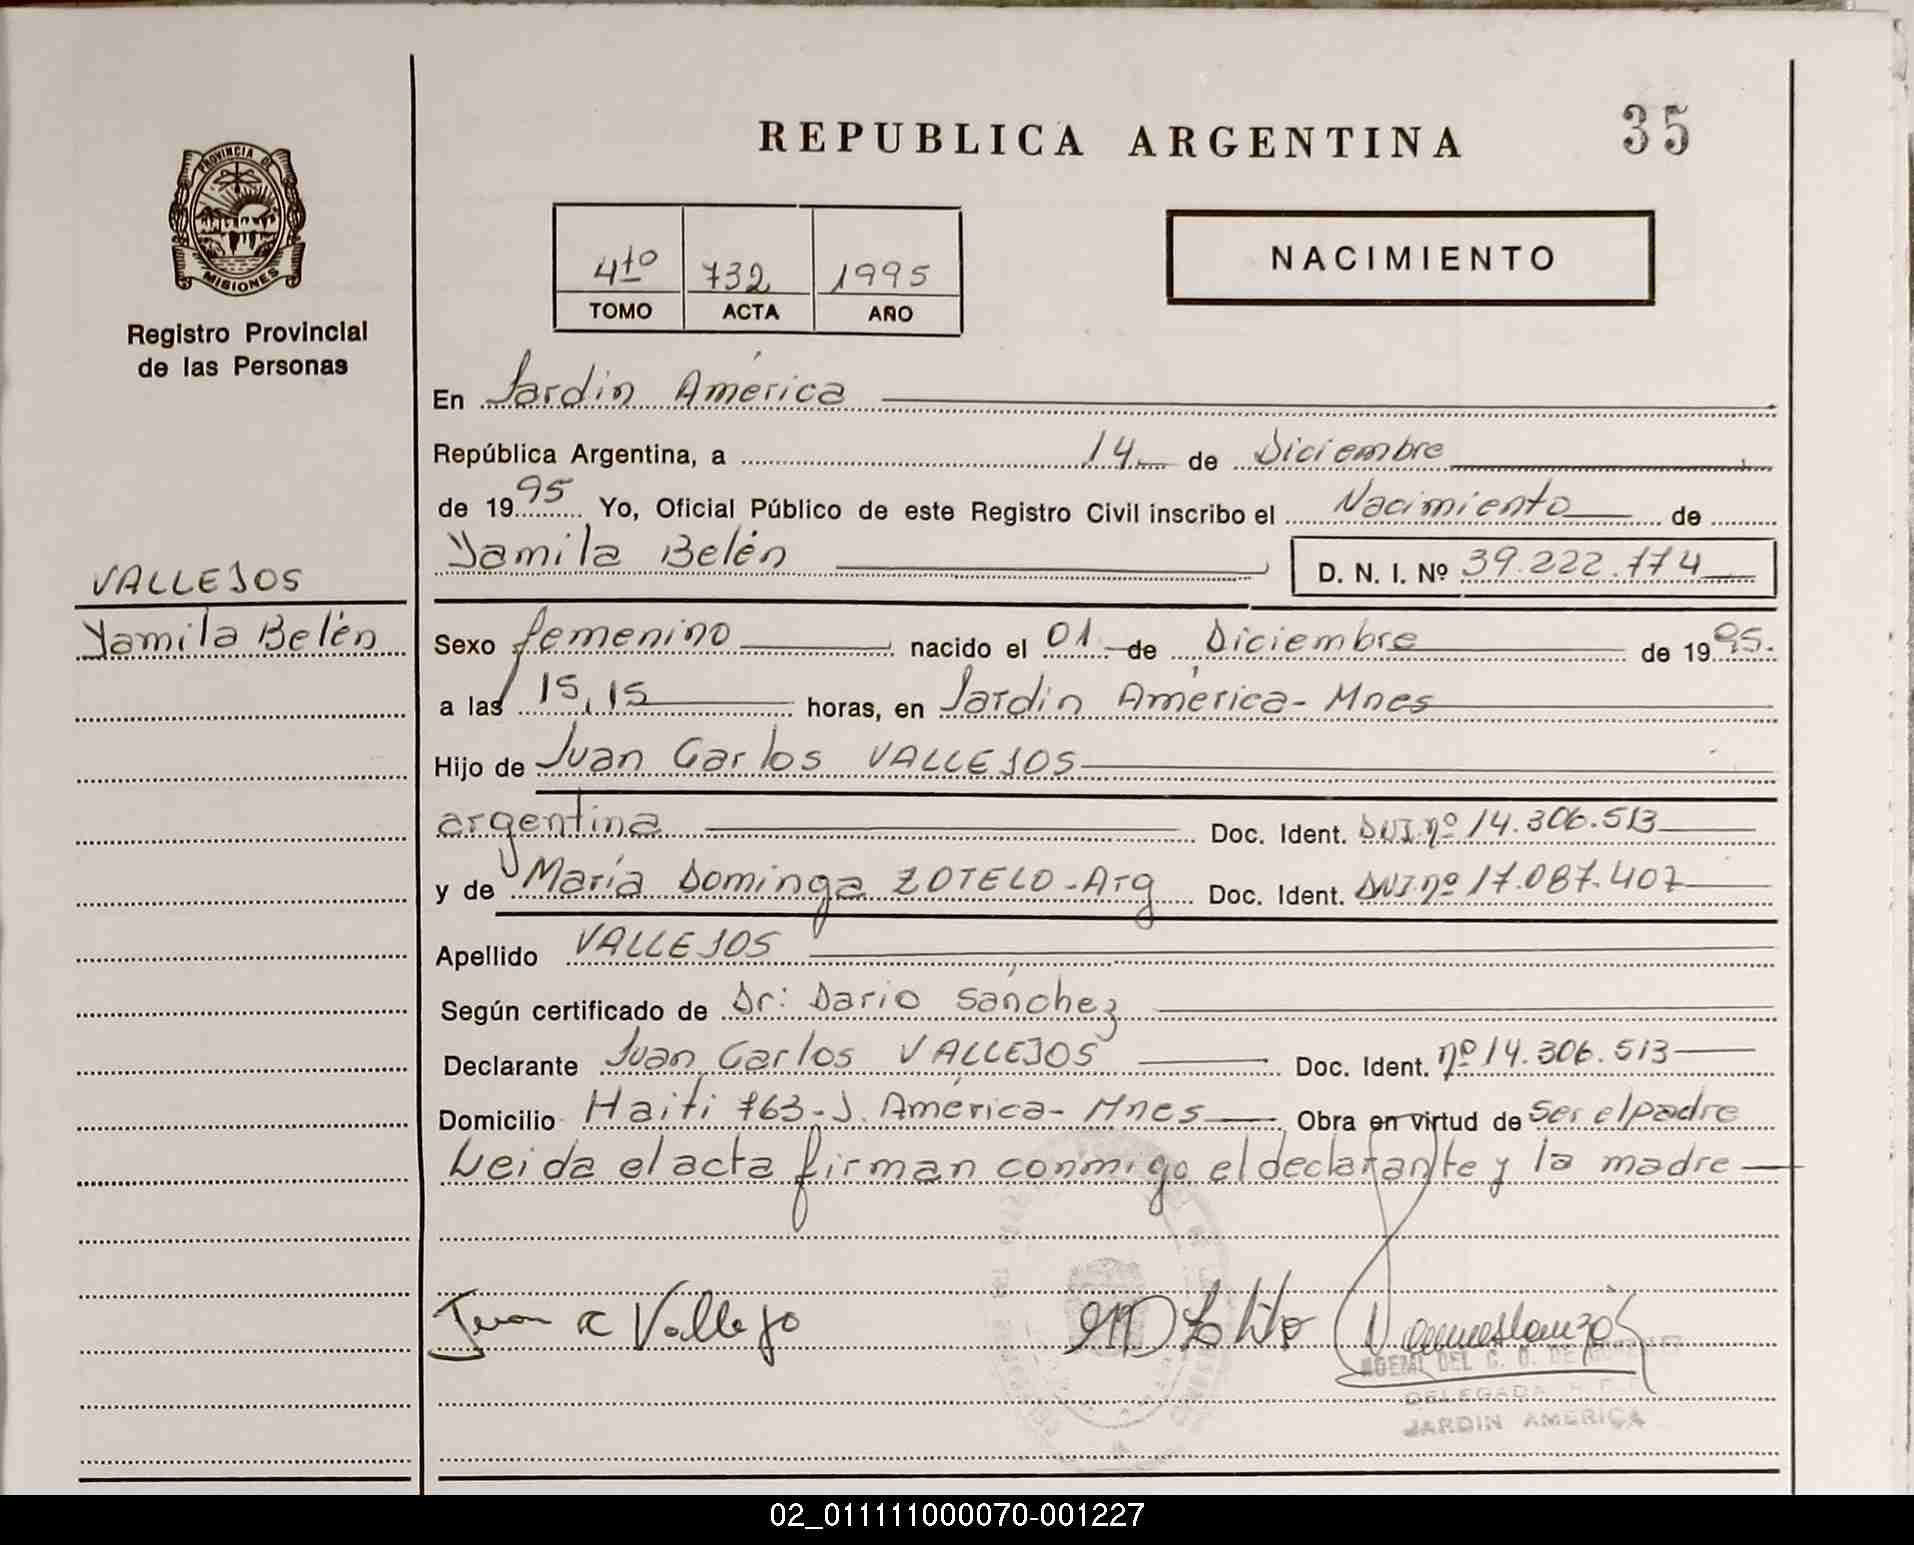 35
REPUBLICA ARGENTINA
PROVINCIA DE
MISIONES
Registro Provincial
de las Personas
4to 732 1995
TOMO ACTA AÑO
NACIMIENTO
En Jardín América
República Argentina, a 14 de Diciembre
de 1995 Yo, Oficial Público de este Registro Civil inscribo el Nacimiento de
Yamila Belén D. N. I. Nº 39.222.774
VALLEJOS
Yamila Belén
Sexo femenino nacido el 01 de Diciembre de 1995.
a las 15,15 horas, en Jardín América - Mnes
Hijo de Juan Carlos VALLEJOS
argentina Doc. Ident. DNI nº 14.306.513
y de María Dominga ZOTELO - Arg Doc. Ident. DNI nº 17.087.407
Apellido VALLEJOS
Según certificado de Dr: Dario Sánchez
Declarante Juan Carlos VALLEJOS Doc. Ident. nº 14.306.513
Domicilio Haiti 763 - J. América - Mnes Obra en virtud de ser el padre
Leida el acta firman conmigo el declarante y la madre
Juan C Vallejo
NOEMI DEL C. D. DE
DELEGADA
JARDIN AMERICA
02_011111000070-001227